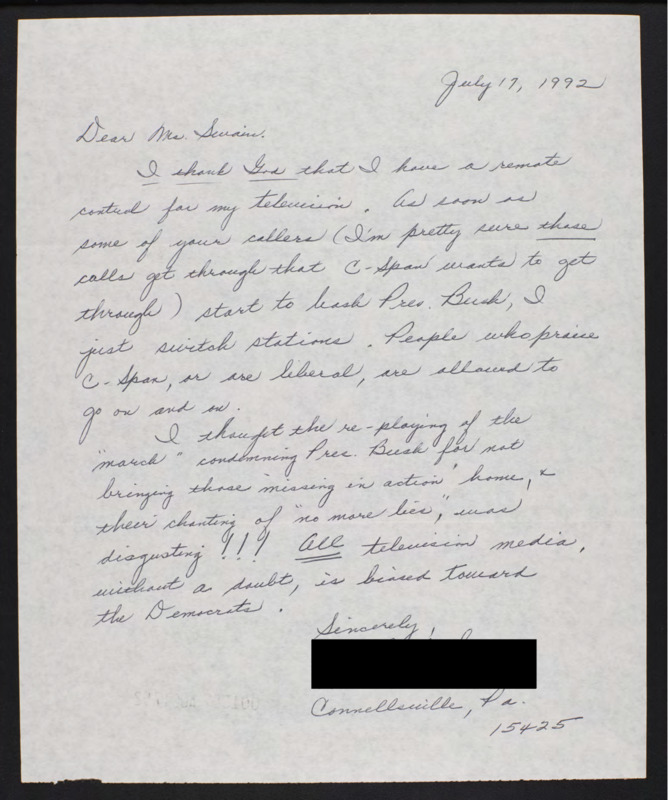 July 17, 1992
Dear Ms. Swain.
I thank God that I have a remote
control for my television. As soon as
some of your callers (I'm pretty sure those
calls get through that C-Span wants to get
through) start to bash Pres. Bush, I
just switch stations. People who praise
C-Span, or are liberal, are allowed to
go on and on.
I thought the re-playing of the
"march" condemning Pres. Bush for not
bringing those 'missing in action' home, &
their chanting of "no more lies", was
disgusting!!! All television media,
without a doubt, is biased toward
the Democrats.
Sincerely,
Connellsville, Pa.
15425